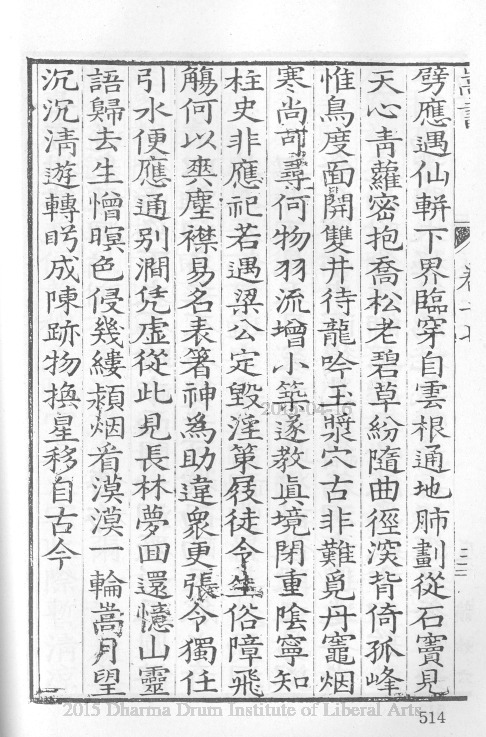 嵩書
卷十七
劈應遇仙輧下界臨穿自雲根通地肺劃從石竇見
天心青蘿密抱喬松老碧草紛隨曲徑深背倚孤峰
惟鳥度面開雙井待龍吟玉漿穴古非難覓丹竈烟
寒尚可尋何物羽流增小築遂教眞境閉重陰寧知
柱史非應祀若遇梁公定毀淫策屐徒令生俗障飛
觴何以爽塵襟易名表箸神爲助違衆更張令獨任
引水便應通別澗凭虛從此見長林夢回還憶山靈
語歸去生憎暝色侵幾縷潁烟看漠漠一輪嵩月望
沉沉清遊轉盻成陳跡物換星移自古今
2015 Dharma Drum Institute of Liberal Arts
514